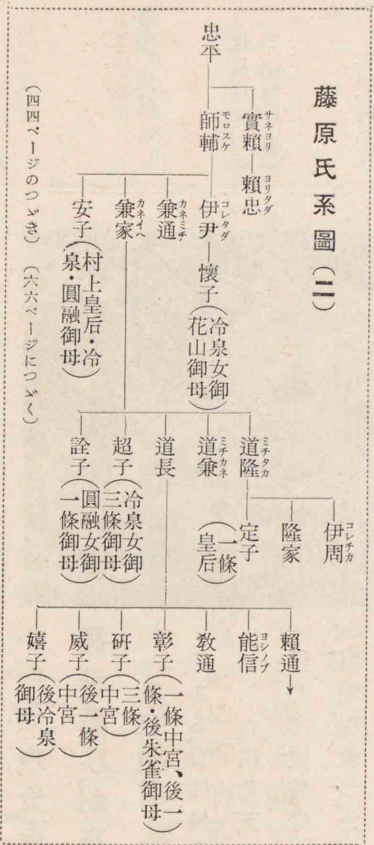 藤原氏系圖（二）
忠平
實賴
サネヨリ
賴忠
ヨリタダ
師輔
モロスケ
伊尹
コレタダ
懷子（冷泉女御
花山御母）
兼通
カネミチ
兼家
カネイヘ
安子（村上皇后・冷
泉・圓融御母）
道隆
ミチタカ
伊周
コレチカ
隆家
定子（一條
皇后）
道兼
ミチカネ
道長
超子（冷泉女御
三條御母）
詮子（圓融女御
一條御母）
賴通
能信
ヨシノブ
敎通
彰子（一條中宮、後一
條・後朱雀御母）
硏子（三條
中宮）
威子（後一條
中宮）
嬉子（後冷泉
御母）
（四四ページのつゞき）（六六ページにつゞく）